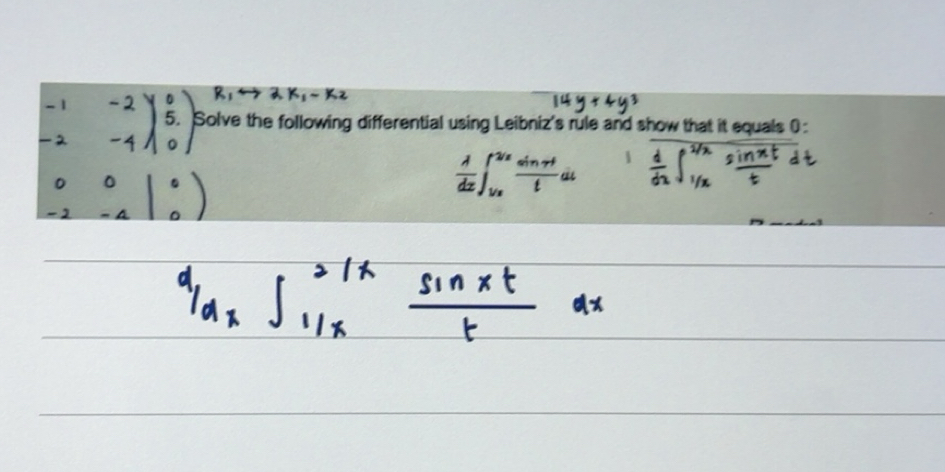 -1 -2 | 0 ) R₁ ↔ 2R₁ - R₂ 14y + 4y³
-2 -4 | 0 ) 5. Solve the following differential using Leibniz's rule and show that it equals 0:
0 0 | 0 ) d/dx ∫_{1/x}^{2/x} sin xt / t dt d/dx ∫_{1/x}^{2/x} sin xt / t dt
-2 -4 | 0 )
d/dx ∫_{1/x}^{2/x} sin xt / t dx